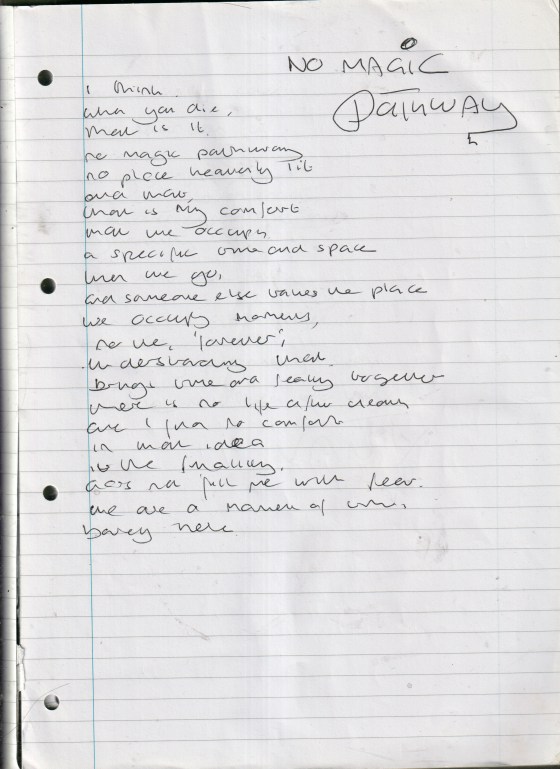 NO MAGIC
PATHWAY
i think
when you die,
that is it.
no magic pathway
no place heavenly lit
and that,
that is my comfort
that we occupy
a specific time and space
then we go,
and someone else takes the place
we occupy moments,
no the, 'forever',
understanding that
brings time and together
there is no life after death
and i find no comfort
in that idea
is the finality,
does not fill me with fear.
we are a moment of time,
barely here